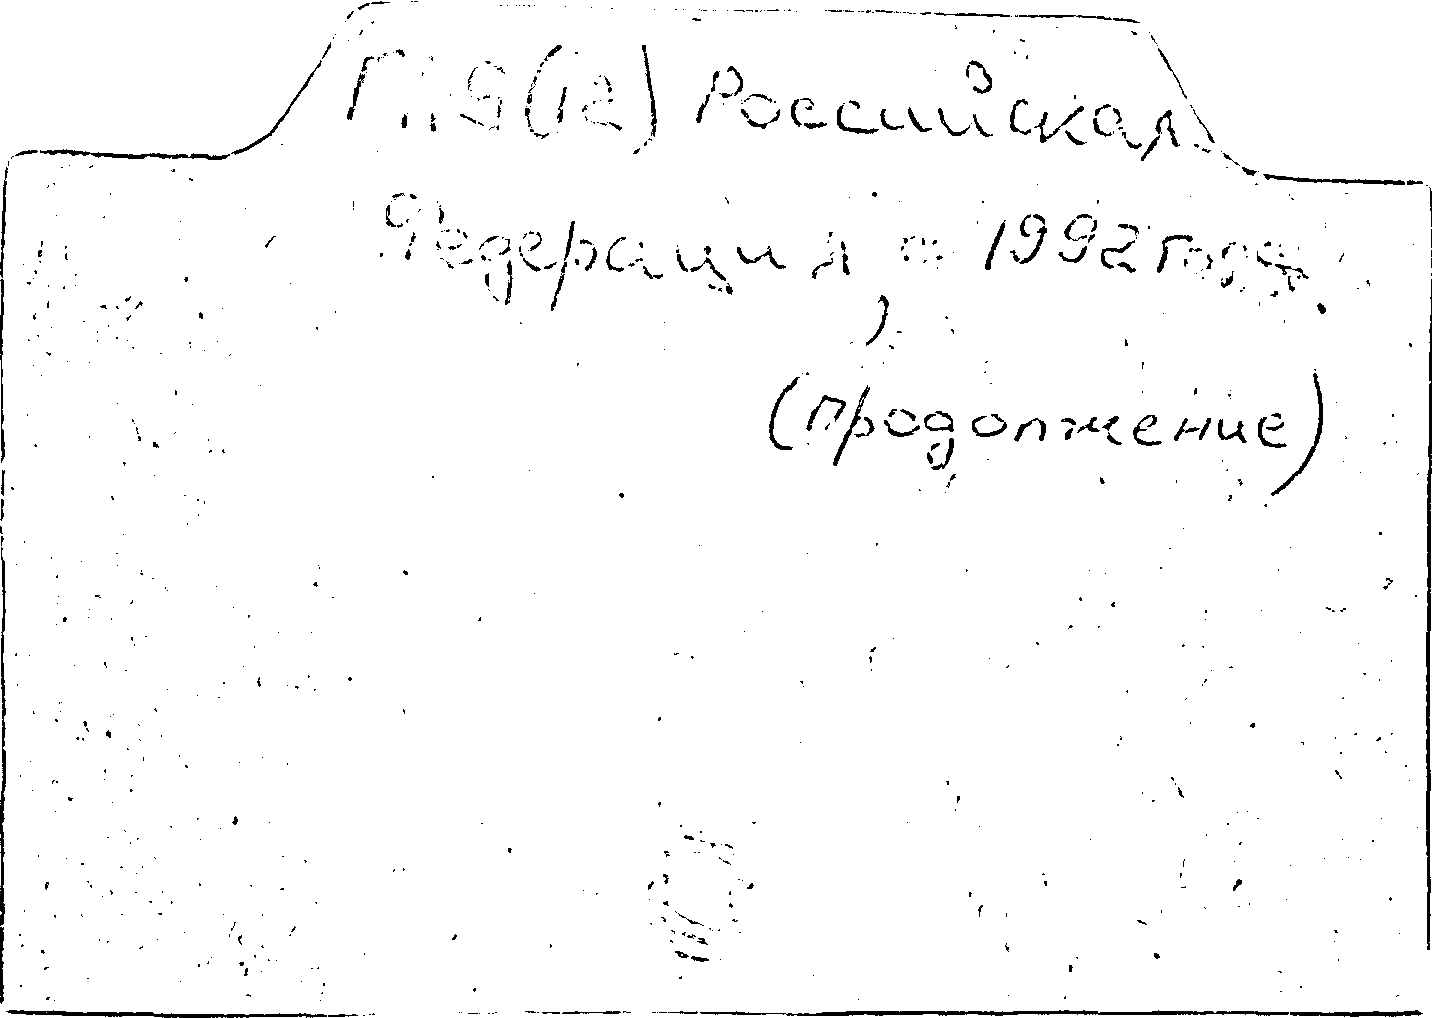 Г119(12) Российская
Федерация с 1992 года
(продолжение)